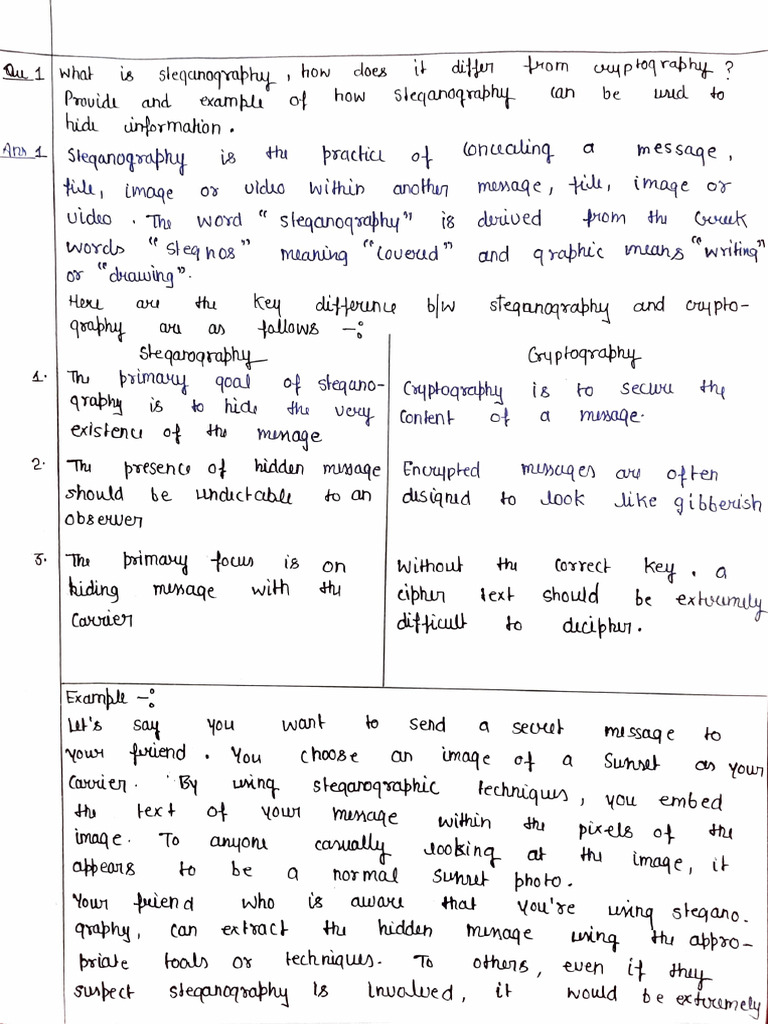 Qu 1 What is steganography, how does it differ from cryptography?
Provide and example of how steganography can be used to
hide information.
Ans 1 Steganography is the practice of concealing a message,
file, image or video within another message, file, image or
video. The word "steganography" is derived from the Greek
words "stegnos" meaning "covered" and graphic means "writing"
or "drawing".
Here are the key difference b/w steganography and crypto-
graphy are as follows -:
Steganography Cryptography
1. The primary goal of stegano- Cryptography is to secure the
graphy is to hide the very content of a message.
existence of the message
2. The presence of hidden message Encrypted messages are often
should be undictable to an designed to look like gibberish
observer
3. The primary focus is on Without the correct key. a
hiding message with the cipher text should be extremely
carrier difficult to decipher.
Example -:
Let's say you want to send a secret message to
your friend. You choose an image of a sunset as your
carrier. By using steganographic techniques, you embed
the text of your message within the pixels of the
image. To anyone casually looking at the image, it
appears to be a normal sunset photo.
Your friend who is aware that you're using stegano-
graphy, can extract the hidden message using the appro-
priate tools or techniques. To others, even if they
suspect steganography is involved, it would be extremely